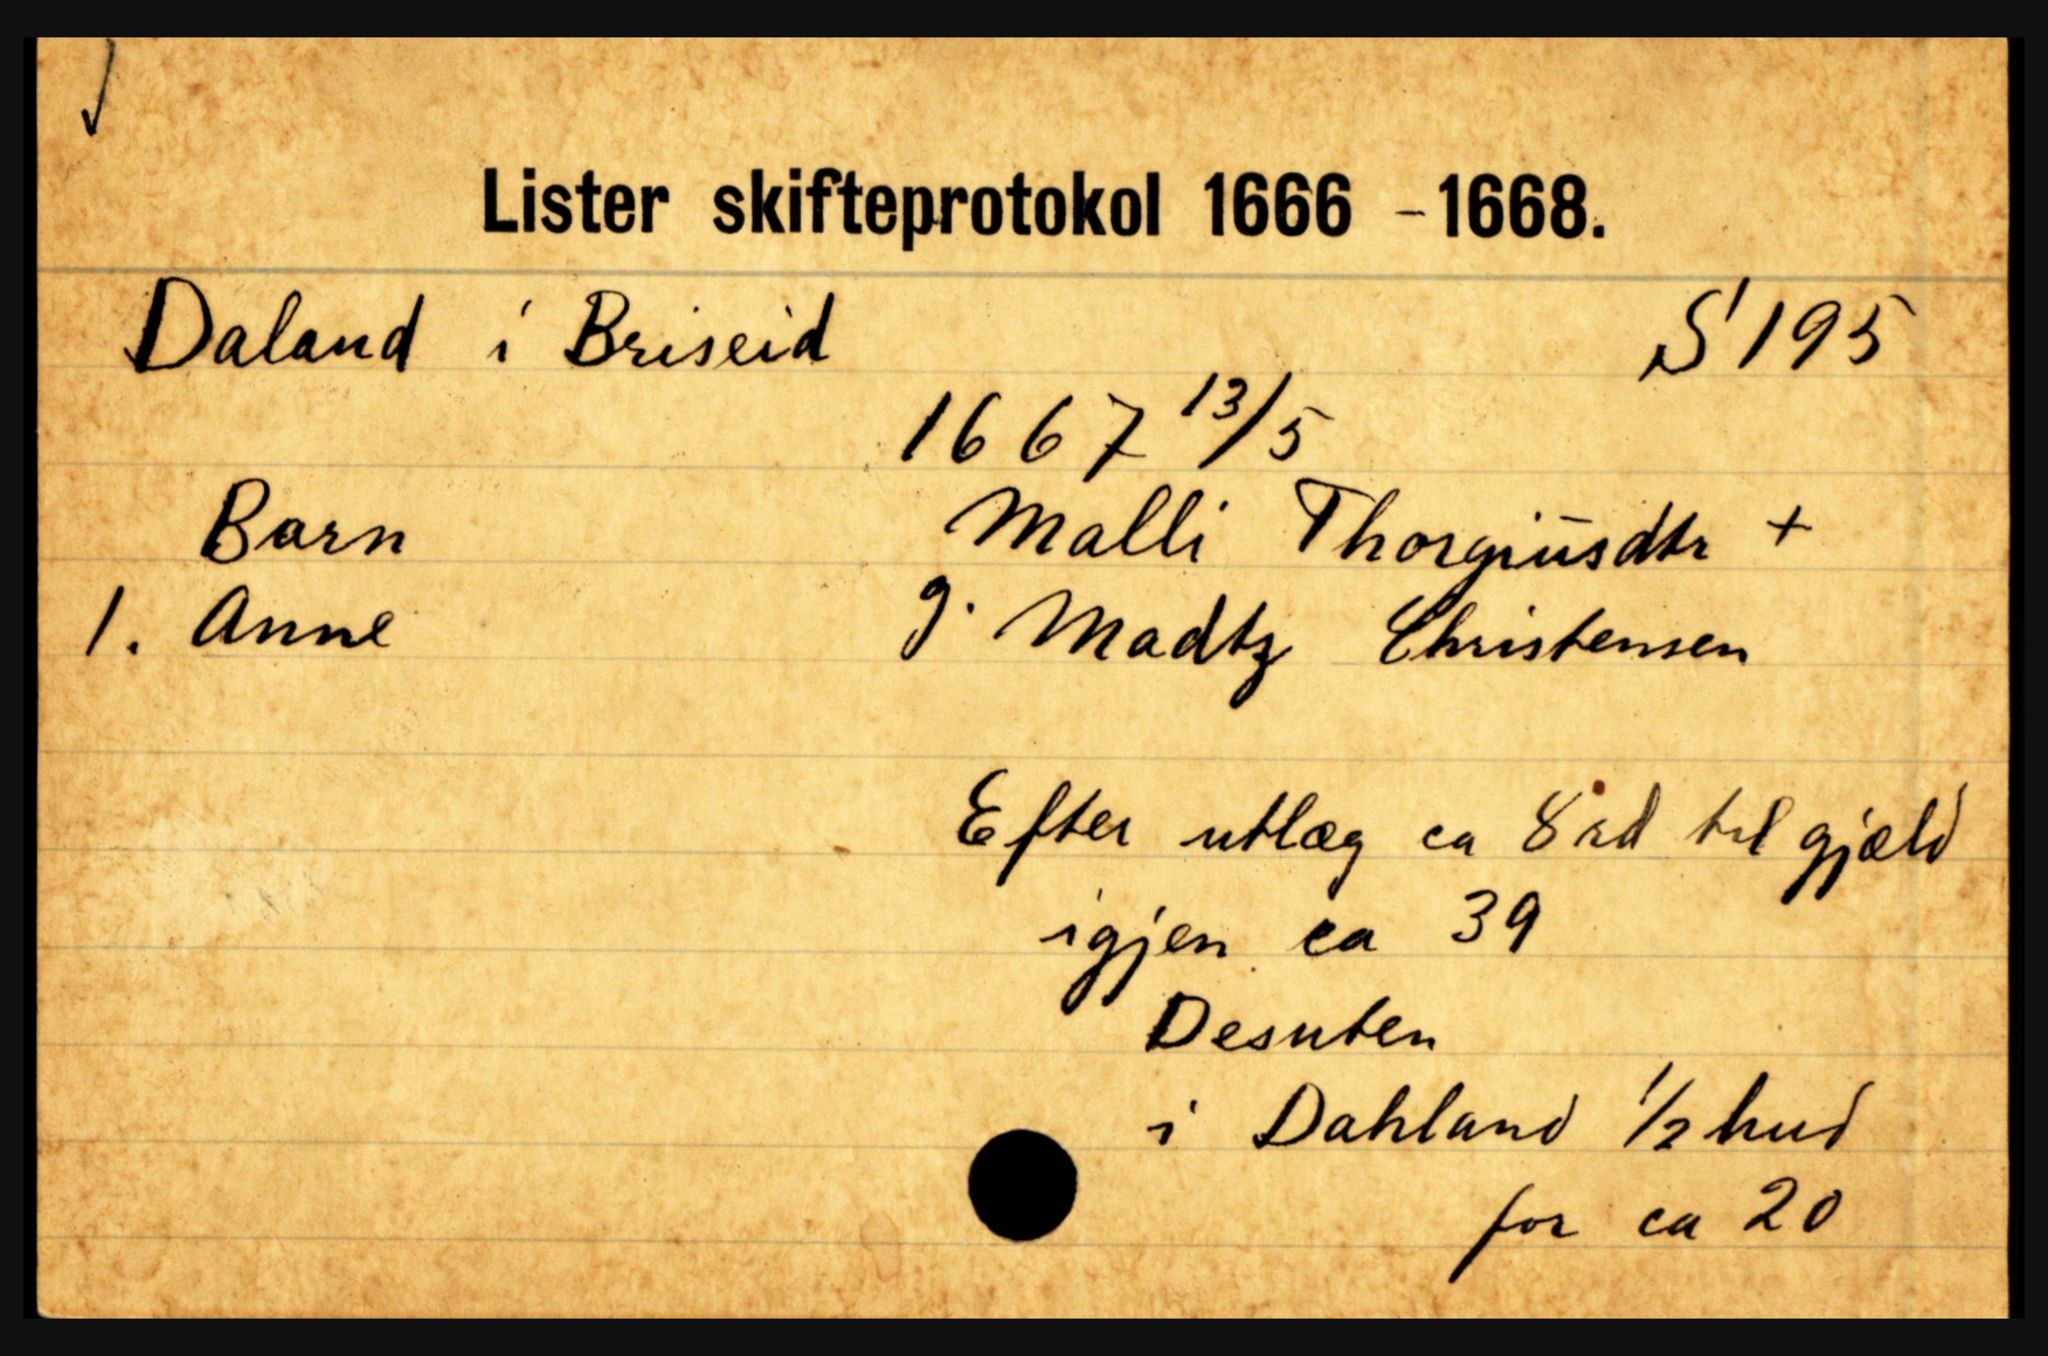 Lister skifteprotokol 1666 - 1668.
Daland i Briseid S 195
1667 13/5
Barn Malli Thorgiusdtr +
1. Anne g. Madtz Christensen
Efter utlæg ca 8 rd til gjæld
igjen ca 39
Desuten
i Dahland 1/2 hud
for ca 20